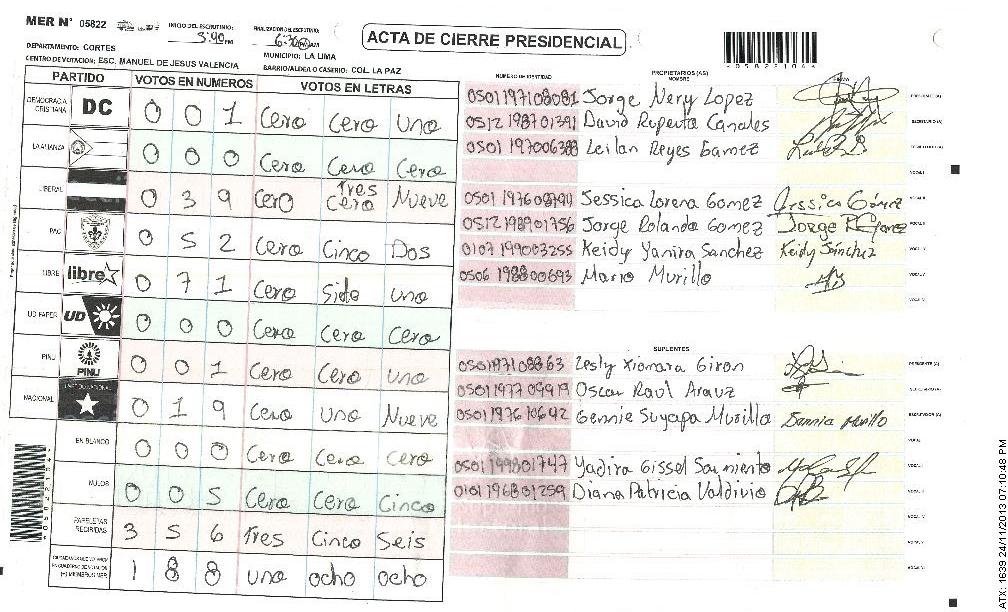 MER N° 05822
INICIO DEL ESCRUTINIO: 3:40 PM
FINALIZACION DEL ESCRUTINIO: 6:30 PM AM
ACTA DE CIERRE PRESIDENCIAL
DEPARTAMENTO: CORTES
MUNICIPIO: LA LIMA
CENTRO DE VOTACION: ESC. MANUEL DE JESUS VALENCIA
BARRIO/ALDEA O CASERIO: COL. LA PAZ
PARTIDO VOTOS EN NUMEROS VOTOS EN LETRAS
DEMOCRACIA CRISTIANA DC 0 0 1 Cero Cero Uno
LA ALIANZA 0 0 0 Cero Cero Cero
LIBERAL 0 3 9 Cero Tres Cero Nueve
PAC 0 5 2 Cero Cinco Dos
LIBRE libre 0 7 1 Cero Siete uno
UD FAPER UD 0 0 0 Cero Cero Cero
PINU PINU 0 0 1 Cero Cero uno
NACIONAL 0 1 9 Cero Uno Nueve
EN BLANCO 0 0 0 Cero Cero Cero
NULOS 0 0 5 Cero Cero Cinco
PAPELETAS RECIBIDAS 3 5 6 Tres Cinco Seis
1 8 8 uno ocho ocho
NUMERO DE IDENTIDAD
PROPIETARIOS (AS)
NOMBRE
0501197108081 Jorge Nery Lopez
0512198701391 David Ruperto Canales
Leilan Reyes Gamez
Jessica Lorena Gomez Jessica Gómez
0512198901756 Jorge Rolando Gomez
0107199003255 Keidy Yanira Sanchez Keidy Sánchez
0506198800693 Mario Murillo
SUPLENTES
Lesly Xiomara Giron
Oscar Raul Arauz
0501197610642 Gennie Suyapa Murillo
0501199801747 Yadira Gissel Sarmiento
0101196801259 Diana Patricia Valdivio
ATX: 1639 24/11/2013 07:10:48 PM